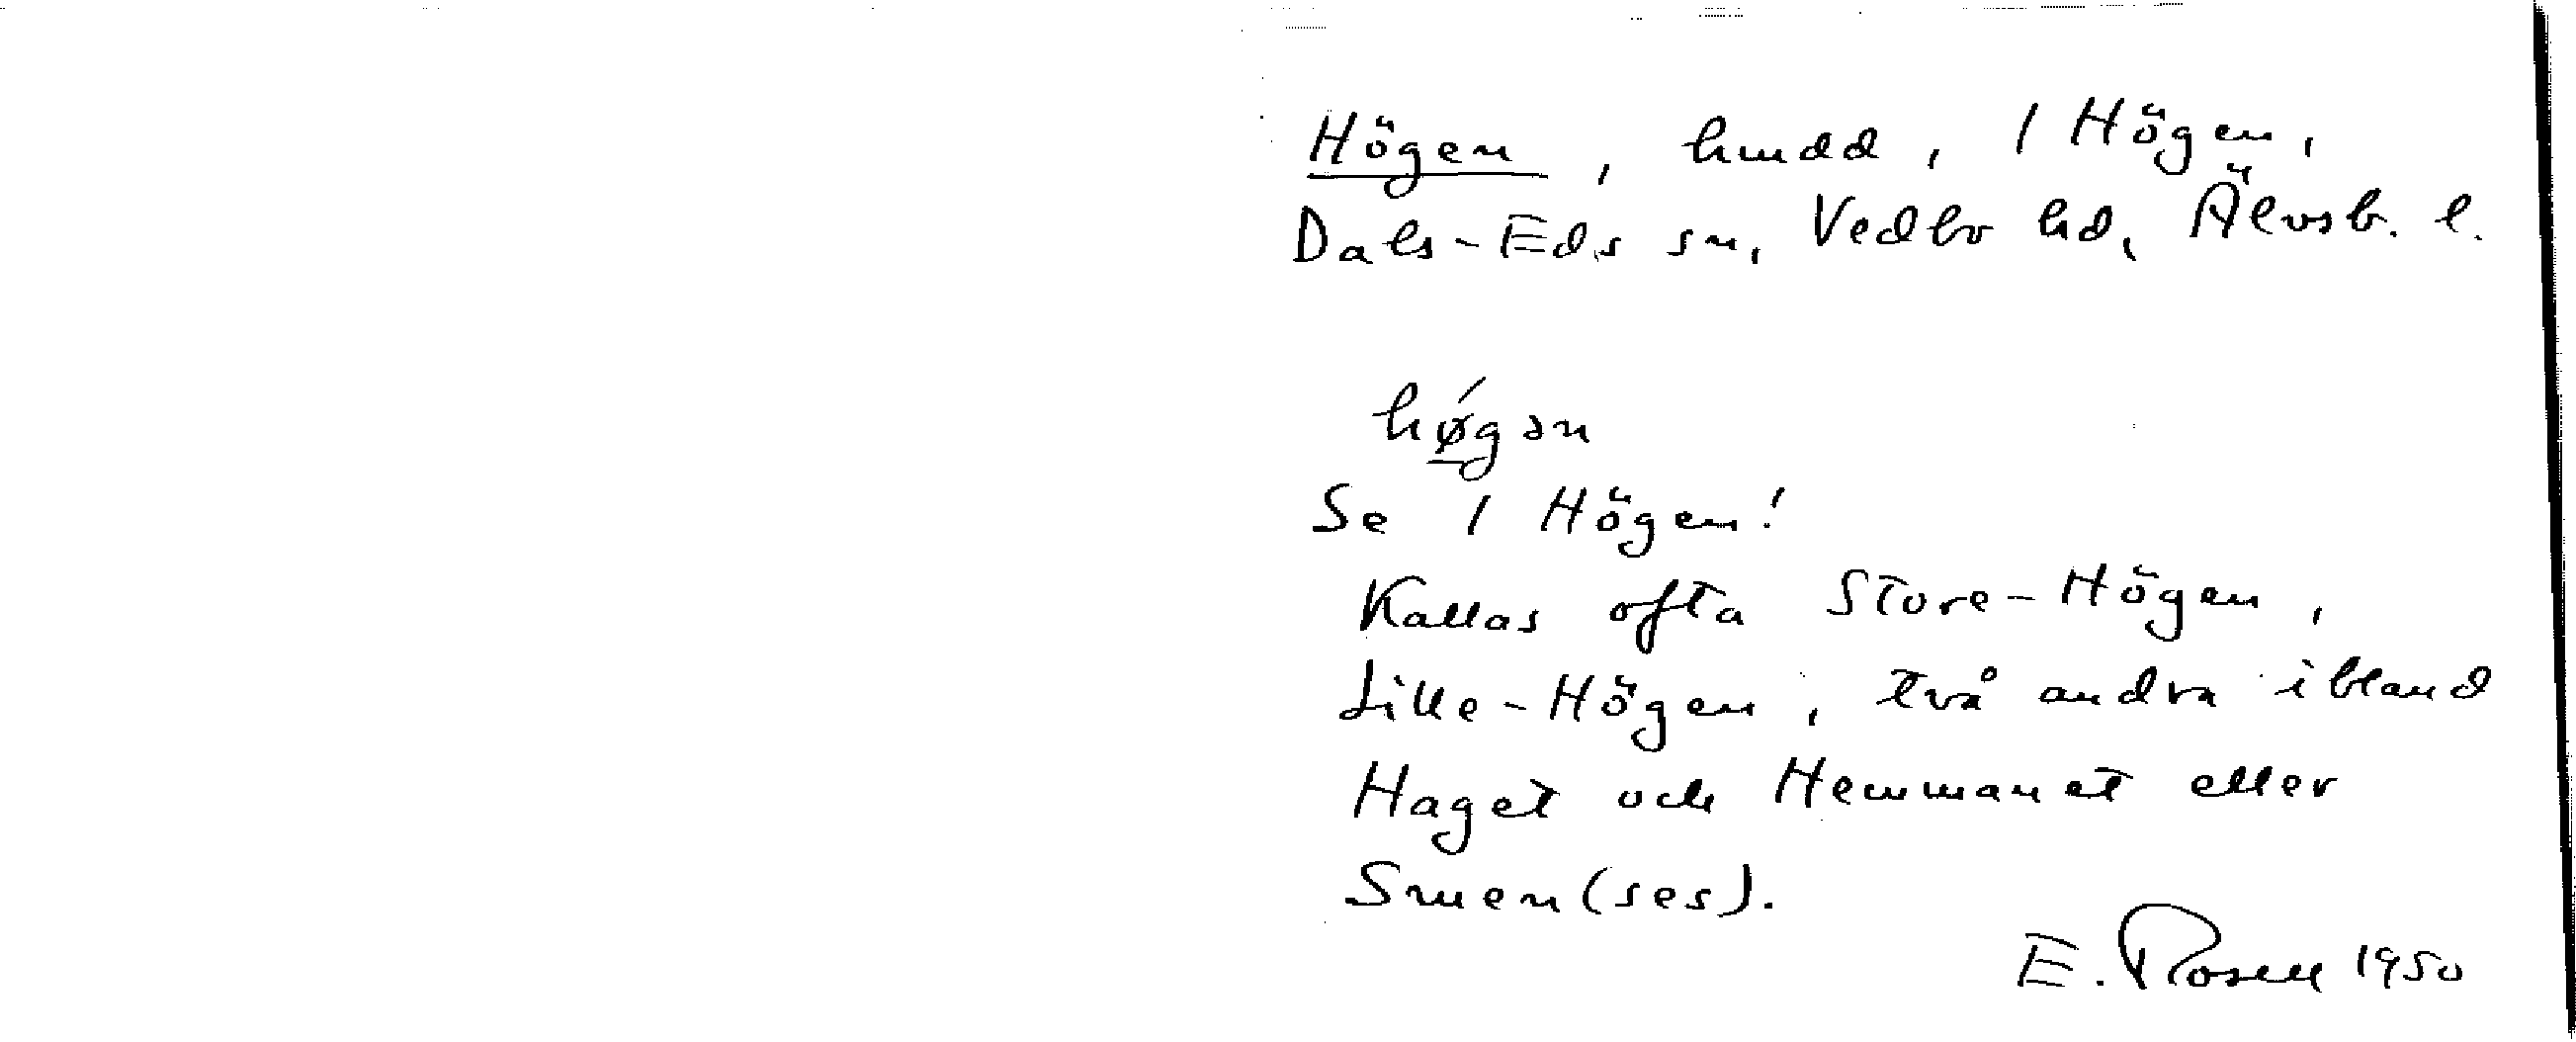 Högen, hmdd, 1 Högen,
Dals-Eds sn, Vedbo hd, Älvsb. l.
hǿ̱gən
Se 1 Högen!
Kallas ofta Store-Högen,
Lille-Högen, två andra ibland
Haget och Hemmanet eller
Smen(ses).
E. Rosell 1950